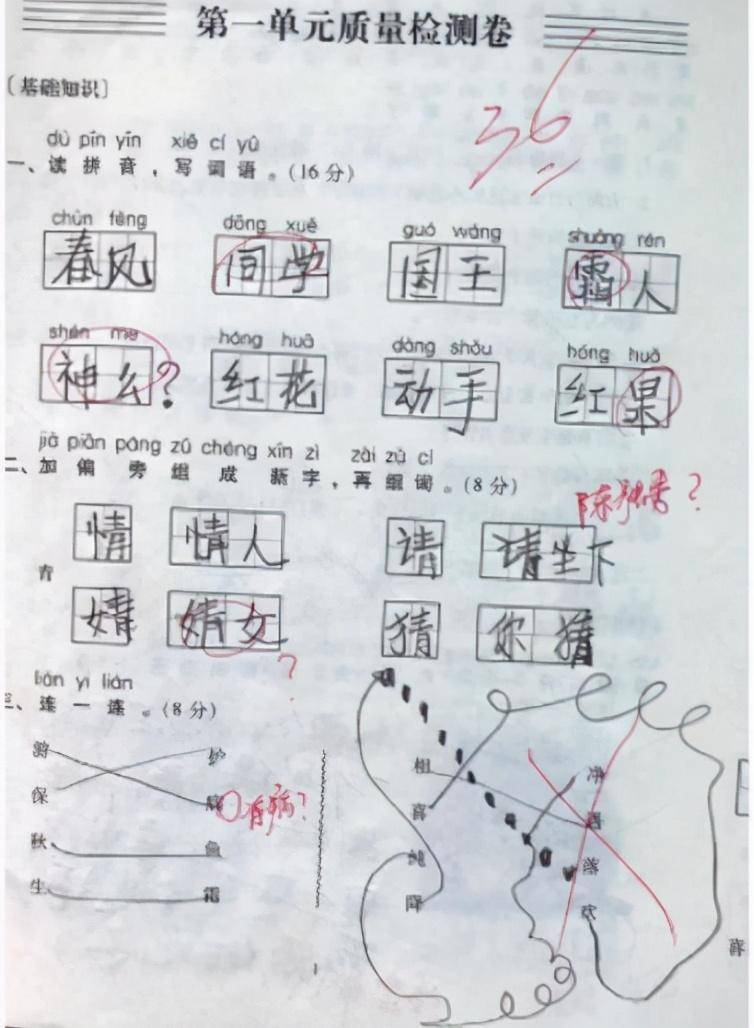 第一单元质量检测卷
36
〔基础知识〕
dú pīn yīn xiě cí yǔ
一、读拼音，写词语。(16分)
chūn fēng dōng xuě guó wáng shuāng rén
春风 同学 国王 霜人
shén me hóng huā dòng shǒu hóng huǒ
神么? 红花 动手 红
jiā piān páng zǔ chéng xīn zì zài zǔ cí
二、加偏旁组成新字，再组词。(8分)
?
情 情人 请 请坐下
青
婧 婧女 猜 你猜
?
lián yi lián
三、连一连。(8分)
游
保
秋 鱼
生 霜
有病?
相 净
喜 遇
纯 落
降 欢
1